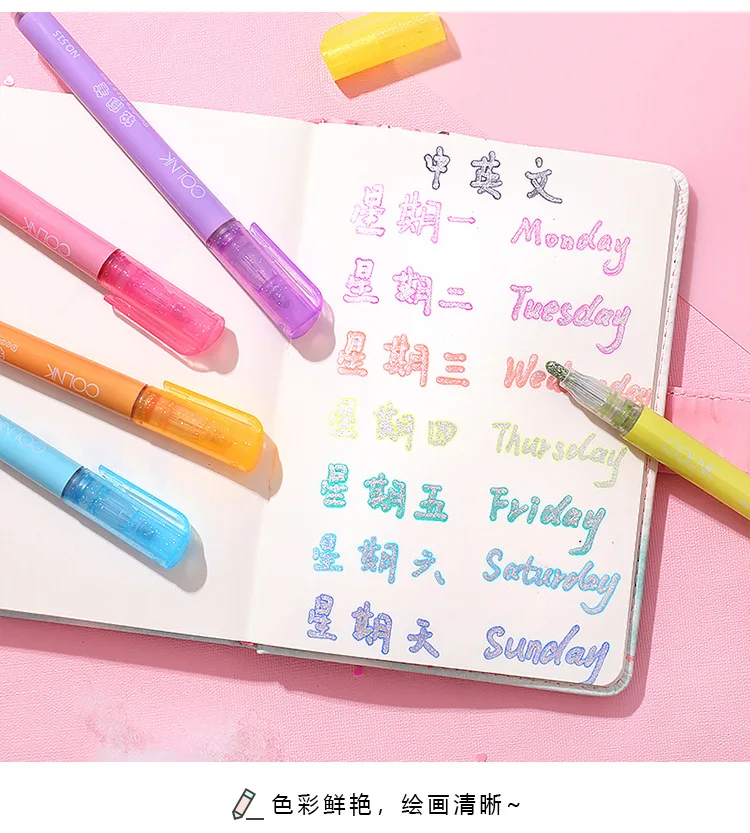 NO.515
COLNK
COLNK
COLNK
COLNK
中英文
星期一 Monday
星期二 Tuesday
星期三 Wednesday
星期四 Thursday
星期五 Friday
星期六 Saturday
星期天 Sunday
色彩鲜艳，绘画清晰~